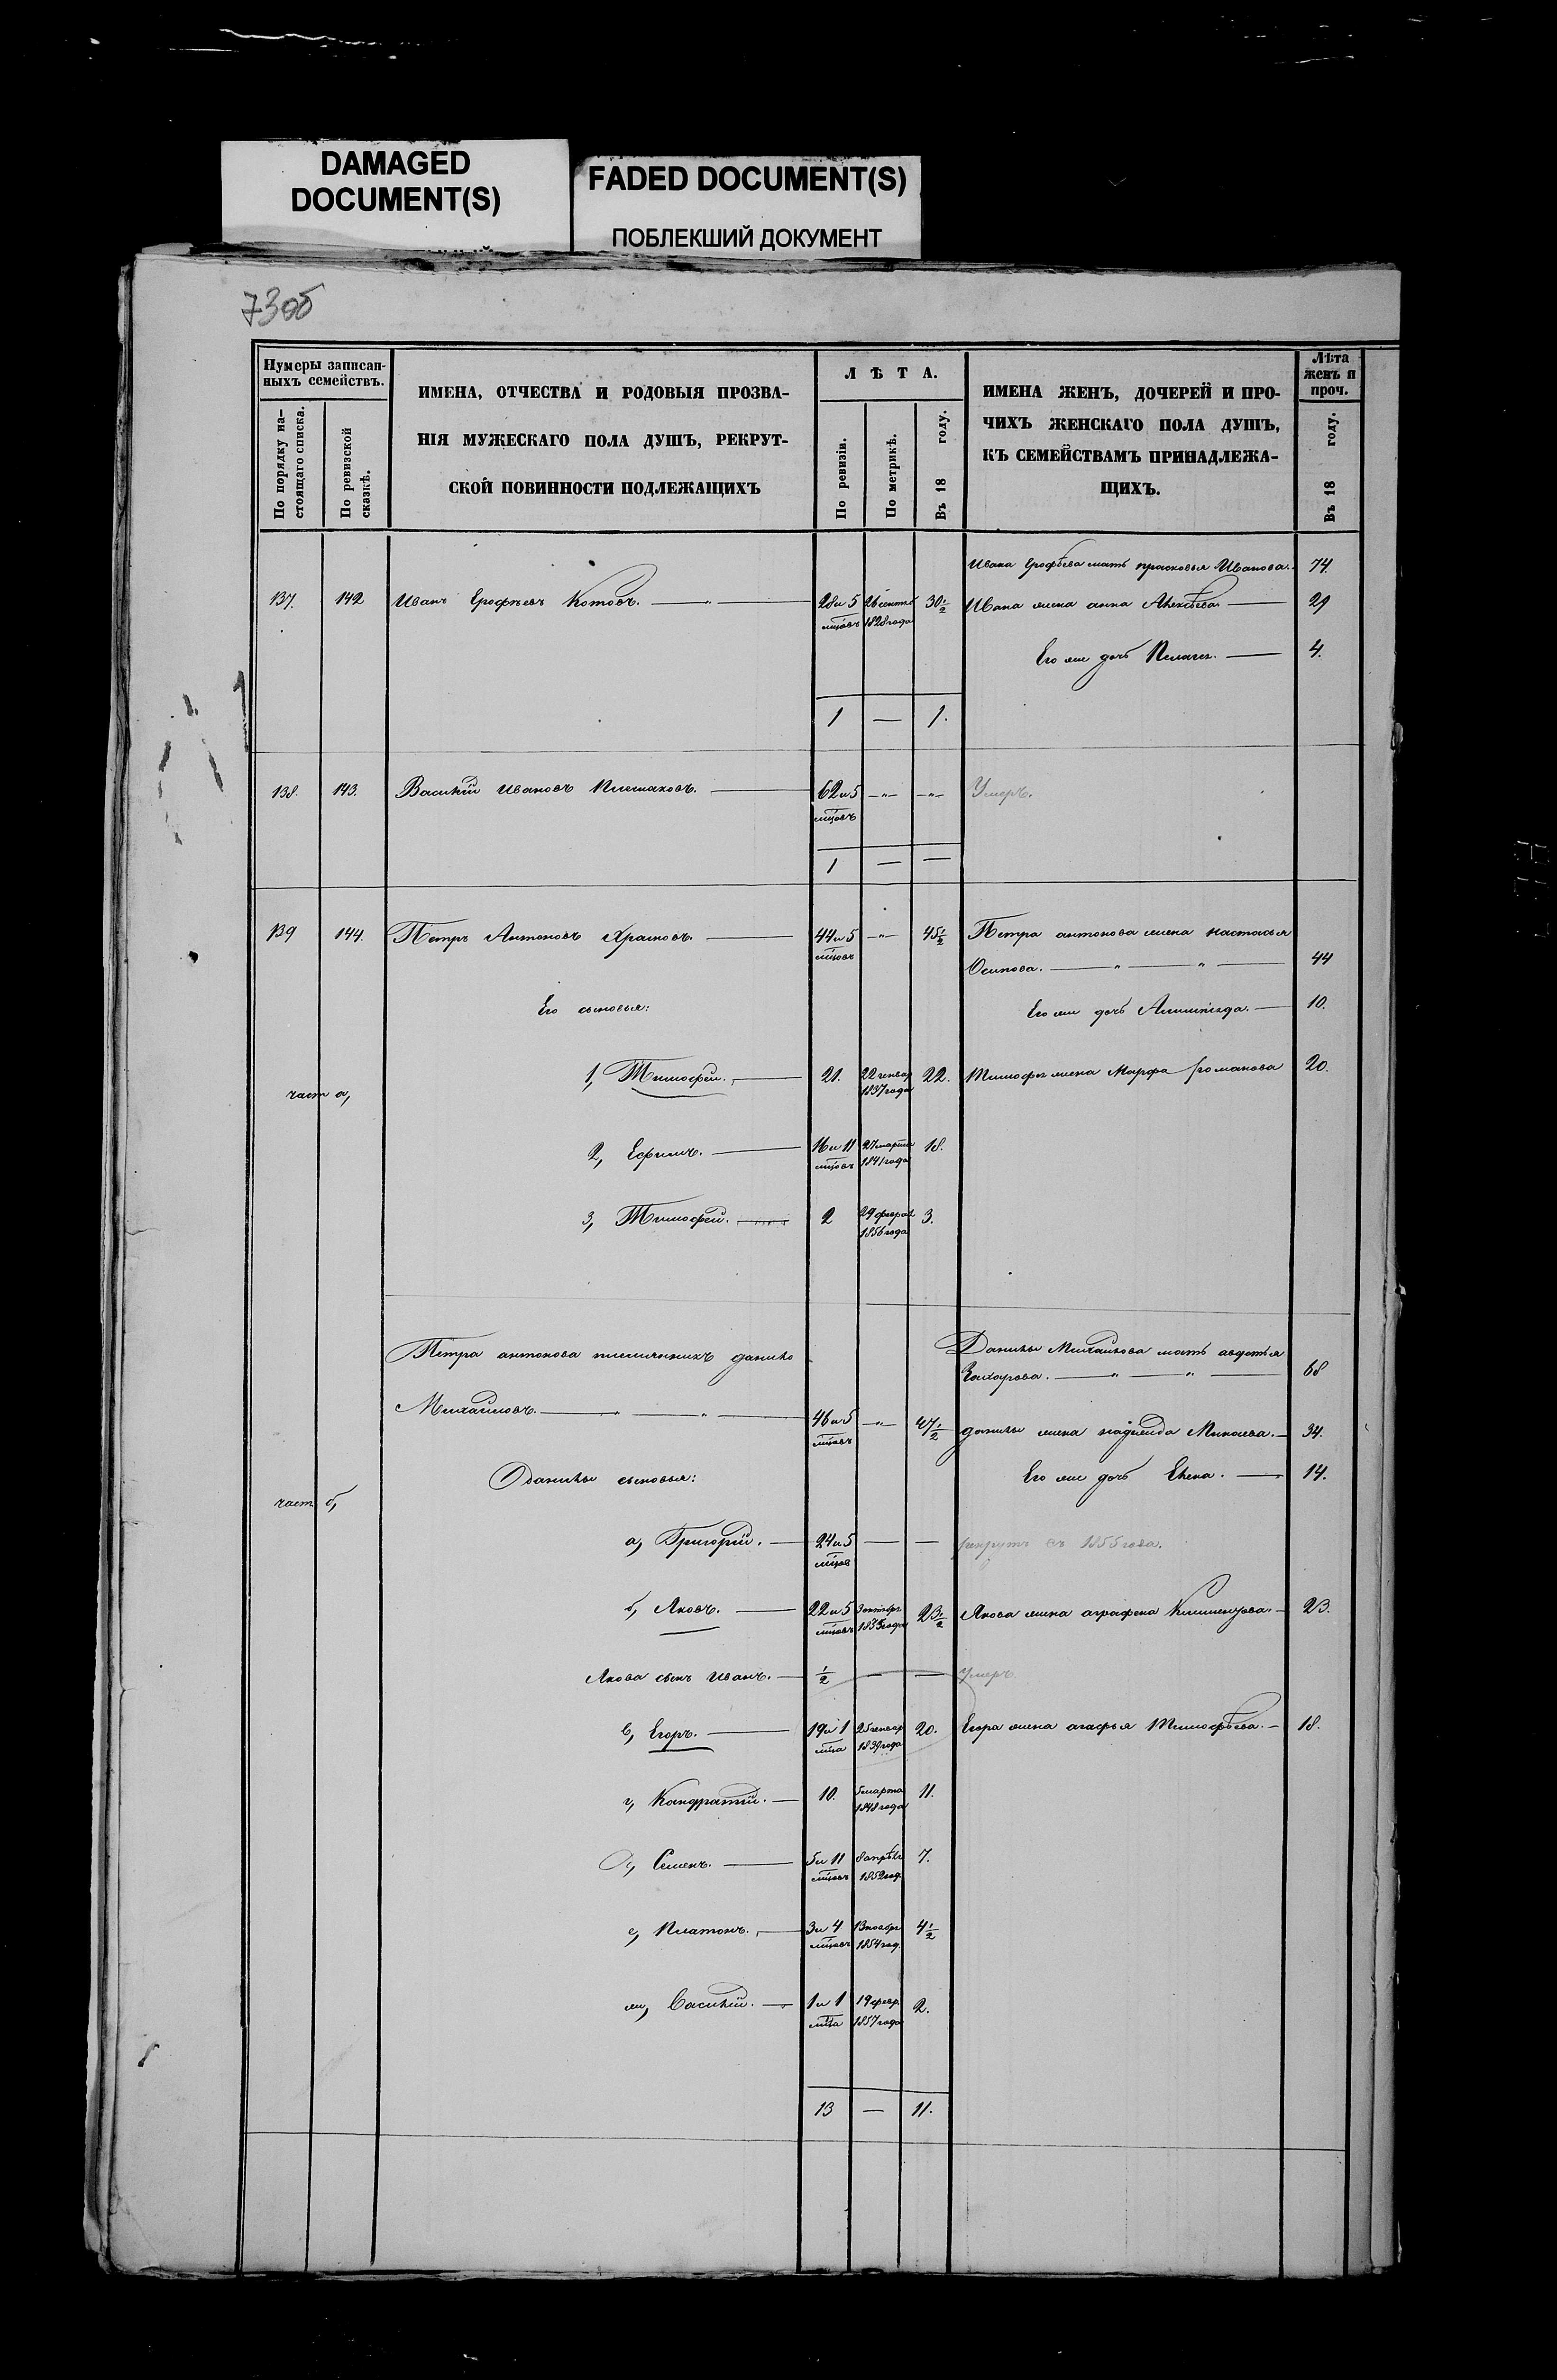 DAMAGED
DOCUMENT(S)
FADED DOCUMENT(S)
ПОБЛЕКШИЙ ДОКУМЕНТ
73об
Нумеры записан-
ныхъ семействъ.
По порядку на-
стоящаго списка.
По ревизской
сказкѣ.
ИМЕНА, ОТЧЕСТВА И РОДОВЫЯ ПРОЗВА-
НІЯ МУЖЕСКАГО ПОЛА ДУШЪ, РЕКРУТ-
СКОЙ ПОВИННОСТИ ПОДЛЕЖАЩИХЪ
ЛѢТА.
По ревизіи.
По метрикѣ.
Въ 18 году.
ИМЕНА ЖЕНЪ, ДОЧЕРЕЙ И ПРО-
ЧИХЪ ЖЕНСКАГО ПОЛА ДУШЪ,
КЪ СЕМЕЙСТВАМЪ ПРИНАДЛЕЖА-
ЩИХЪ.
Лѣта
женъ и
проч.
Въ 18 году.
Ивана Ерофѣева мать прасковья Иванова. 74.
137. 142 Иванъ Ерофѣевъ Котовъ. 28 и 5 26 сентяб 30 1/2 Ивана жена анна Алексѣева 29
мцовъ 1828 года
Его же дочь Пелагея. 4.
1 — 1.
138. 143. Василій Ивановъ 62 и 5 —"— —"— Умеръ.
мцовъ
1 — —
139 144. Петръ Антоновъ Храмовъ. 44 и 5 —"— 45 1/2 Петра антонова жена настасья
мцовъ
Осипова. — " — " — 44
Его сыновья: Его же дочь 10.
1, Тимофей. 21. 22 генвар 22. Тимофея жена Марфа романова 20.
1837 года
част а,
2, Ефимъ. 16 и 11 27 марта 18.
мцовъ 1841 года
3, Тимофей. 2 29 феврал 3.
1856 года
Петра антонова племянникъ данило Данилы Михайлова мать авдотья
Захарова. — " — " — 68
Михайловъ. — " — " — 46 и 5 —"— 47 1/2 данилы жена надежда Минаева. 34.
мцовъ
Данилы сыновья: Его же дочь Елена. 14.
част б,
а, Григорій. 24 и 5 — — рекрутъ съ 1855 года.
мцов
б, Яковъ. 22 и 5 3 октябр 23 1/2 Якова жена аграфена Климентьева. 23.
мцовъ 1835 года
Якова сынъ Иванъ. 1/2 — — умеръ.
в, Егоръ. 19 и 1 25 генвар 20. Егора жена агафья Тимофѣева. 18.
мца 1839 года
г, Кандратій. 10. 5 марта 11.
1848 года
д, Семенъ. 5 и 11 8 апрѣл 7.
мцовъ 1852 год.
е, Платонъ. 3 и 4 13 ноябр 4 1/2
мцовъ 1854 год.
ж, Василій. 1 и 1 19 февр. 2.
мца 1857 года
13 — 11.